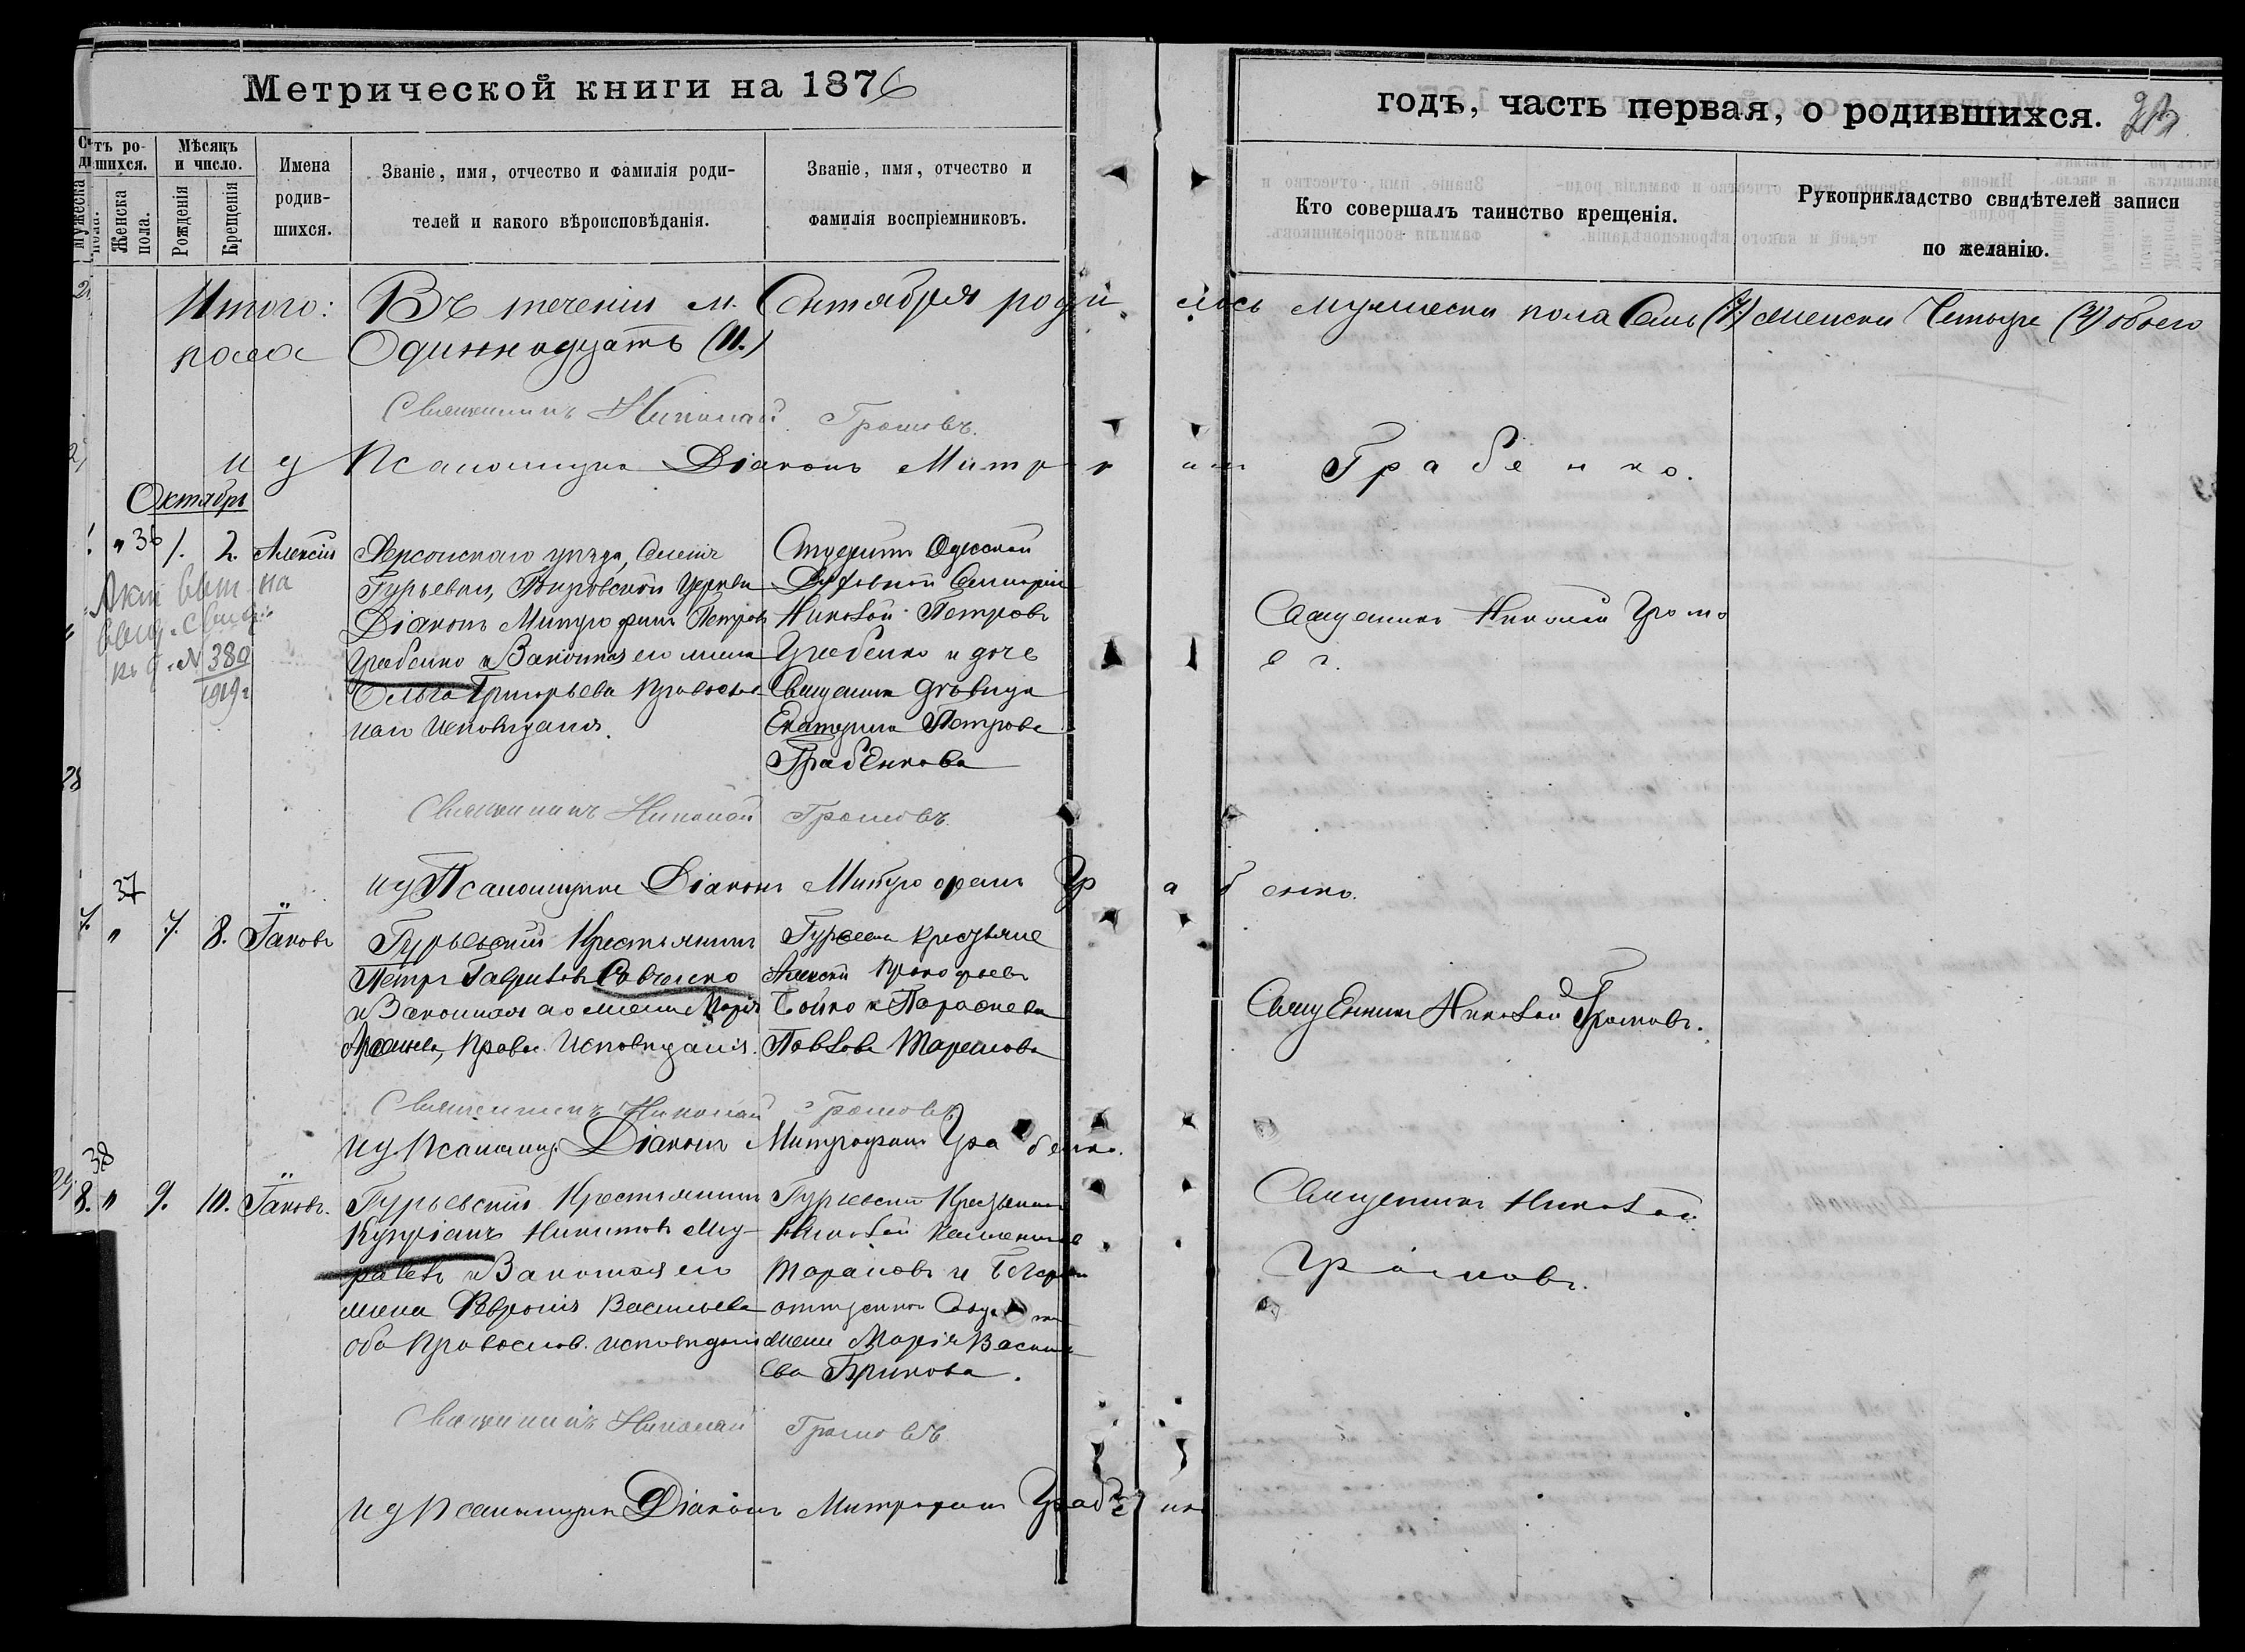 Метрической книги на 1876
годъ, часть первая, о родившихся. 23
Мѣсяцъ и число.
Женска пола.
Рожденія
Крещенія
Имена родив- шихся.
Званіе, имя, отчество и фамилія роди-
телей и какого вѣроисповѣданія.
Званіе, имя, отчество и
фамилія воспріемниковъ.
Кто совершалъ таинство крещенія.
Рукоприкладство свидѣтелей записи
по желанію.
Итого: Въ теченіи м. Сентября роди лось мужеска пола Семь (7) женска Четыре (4) обоего
пола Одиннадцать (11.)
Священникъ Николай Громовъ.
и д Псаломщика Діаконъ Митр Грабенко.
Октябрь
" 36 1. 2. Алексій
Херсонскаго уѣзда, Селенія
Гурьевки, Покровской Церкви
Діаконъ Митрофанъ Петровъ
Грабенко и Законная его жена
Ольга Григорьева Православ
наго Исповѣданія.
Студентъ Одесской
Духовной Семинаріи
Николай Петровъ
Грабенко и дочь
Священника Дѣвица
Екатерина Петрова
Грабенкова
Священникъ Николай Громо
въ.
на
№ 380
1919 г
Священникъ Николай Громовъ
и д Псаломщика Діаконъ Митрофанъ Гр а б енко.
37
7. " 7. 8. Іаковъ
Гурьевскій Крестьянинъ
Петръ Гавриловъ Савченко
и Законная его жена Марія
Правос. Исповѣданія.
Гурьевск. Крестьяне
Алексѣй Прокофьевъ
Бойко и Параскева
Павлова
Священникъ Николай Громовъ.
Священникъ Николай Громовъ
и д. Псаломщ. Діаконъ Митрофанъ Гра бенко.
38
8. " 9. 10. Іаковъ.
Гурьевскій Крестьянинъ
Кипріанъ Никитовъ Му-
равевъ и Законная его
жена Февронія Васильева
оба Православ. исповѣдан
Гурьевскій Крестьянинъ
Николай
Тарановъ и
жена Марія Василь
ева Брикова.
Священникъ Николай
Громовъ.
Священникъ Николай Громовъ
и д Псаломщика Діаконъ Митрофанъ Грабенко